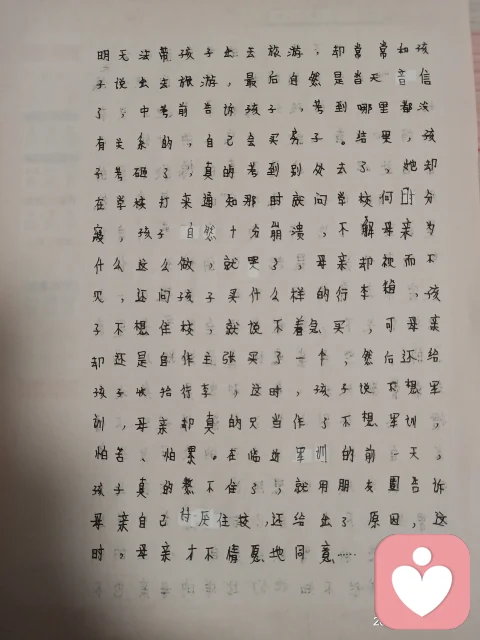 明无法带孩子出去旅游，却常常和孩
子说出去旅游，最后自然是当天音信
了，中考前告诉孩子，考到哪里都没
有关系的，自己会买房子。结果，孩
子考砸了，真的考到别处去了，她却
在学校打来通知那时就问学校何时分
寝，孩子自然十分崩溃，不解母亲为
什么这么做，就哭了，母亲却视而不
见，还问孩子买什么样的行李箱，孩
子不想住校，就说不着急买，可母亲
却还是自作主张买了一个，然后还给
孩子收拾行李，这时，孩子说不想军
训，母亲却真的只当作了不想军训，
怕苦、怕累。在临近军训的前一天，
孩子真的憋不住了，就用朋友圈告诉
母亲自己讨厌住校，还给出了原因，这
时，母亲才不情愿地同意……